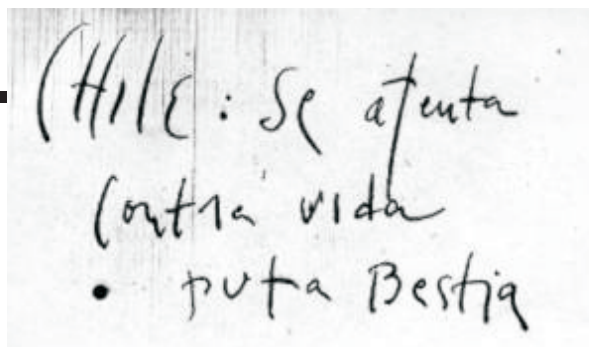 CHILE: Se atenta
contra vida
• puta Bestia